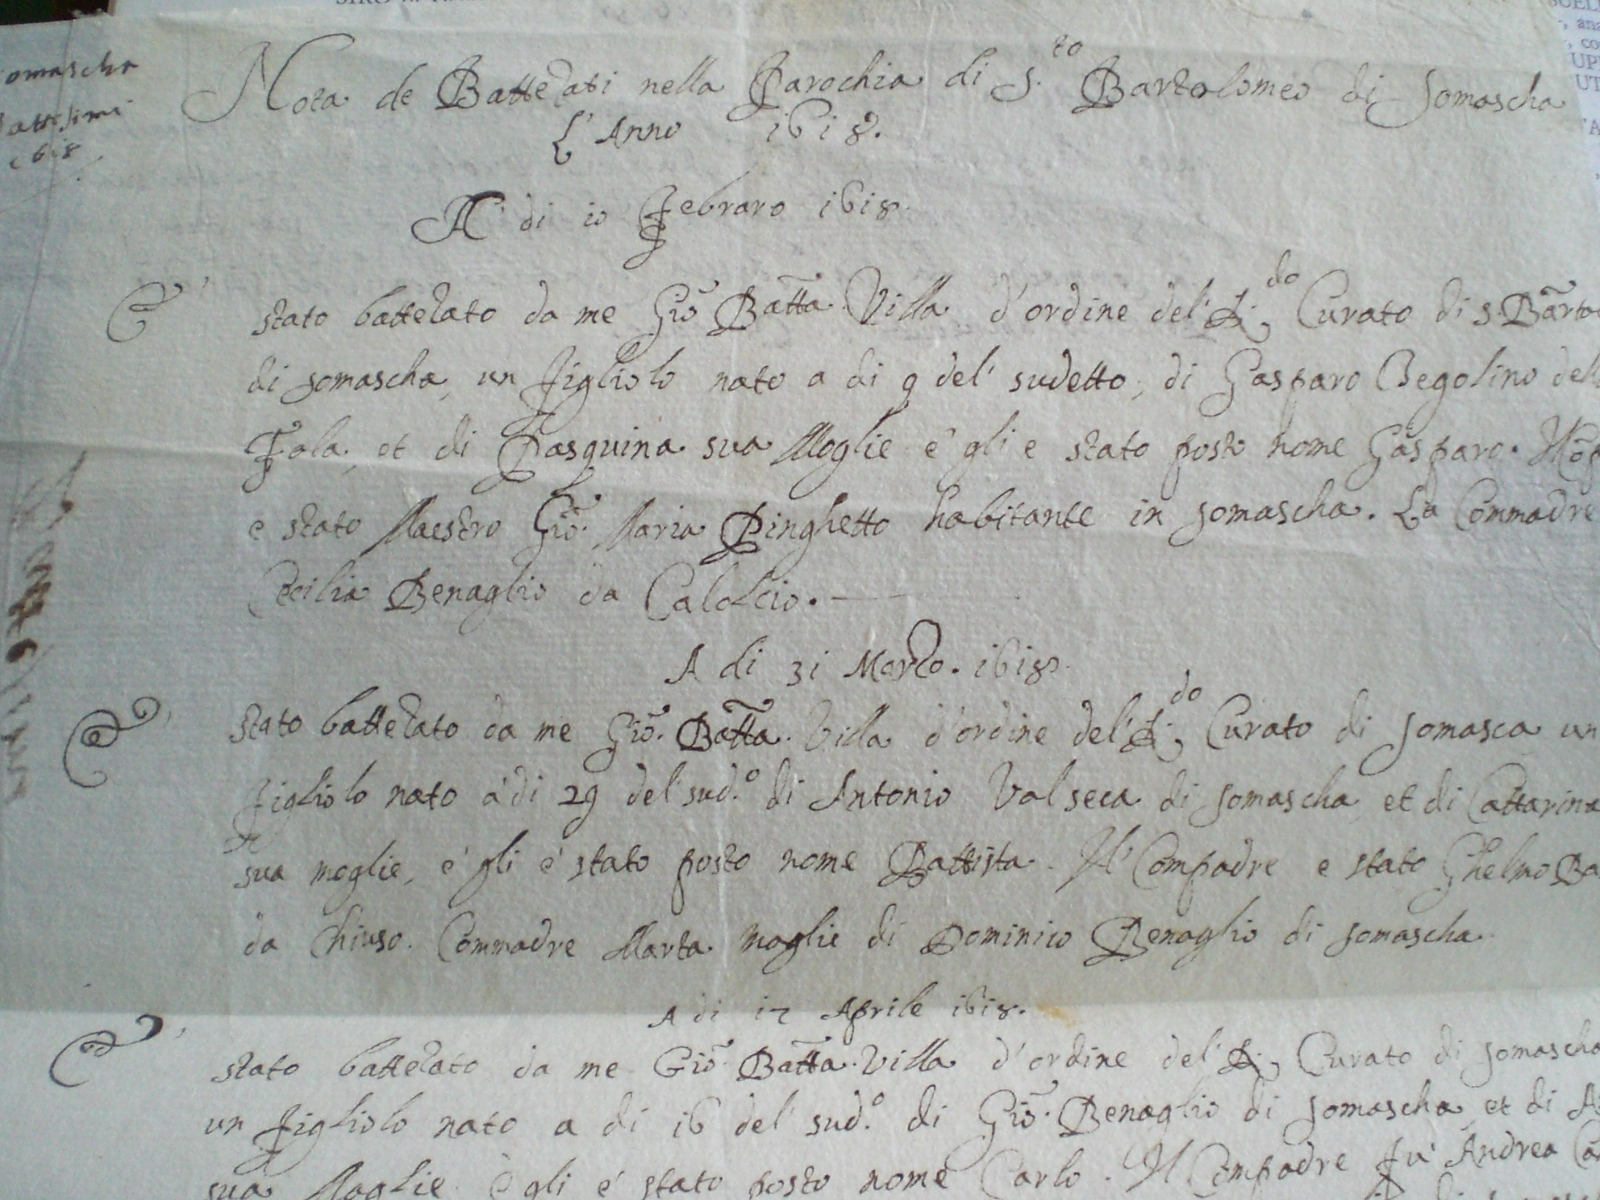 omascha
attesimi
1618
Nota de Battezati nella Parochia di S.to Bartolomeo di Somascha
L'Anno 1618.
A' di 10 Febraro 1618.
E' stato battezato da me Gio. Batta. Villa d'ordine del' R.do Curato di S. Barto
di Somascha, un figliolo nato a di 9 del' sudetto, di Gasparo Begolino del
Fola, et di Pasquina sua Moglie e' gli e stato posto nome Gasparo.
e stato Maestro Gio. Maria Pinghetto habitante in Somascha. La Commadre
Cecilia Benaglio da Calolcio.
A di 31 Marzo. 1618.
E' stato battezato da me Gio. Batta. Villa d'ordine del' R.do Curato di Somasca un
figliolo nato a' di 29 del sud.o di Antonio Valseca di Somascha, et di Cattarina
sua moglie, e' gli e' stato posto nome Battista. Il Compadre e stato Ghelmo Ba
da Chiuso. Commadre Marta moglie di Dominico Benaglio di Somascha.
A di 17 Aprile 1618.
E' stato battezato da me Gio. Batta. Villa d'ordine del' R. Curato di Somascha
un figliolo nato a di 16 del' sud.o di Gio. Benaglio di Somascha, et di A
sua Moglie e gli e' stato posto nome Carlo. Il Compadre fu' Andrea Ca